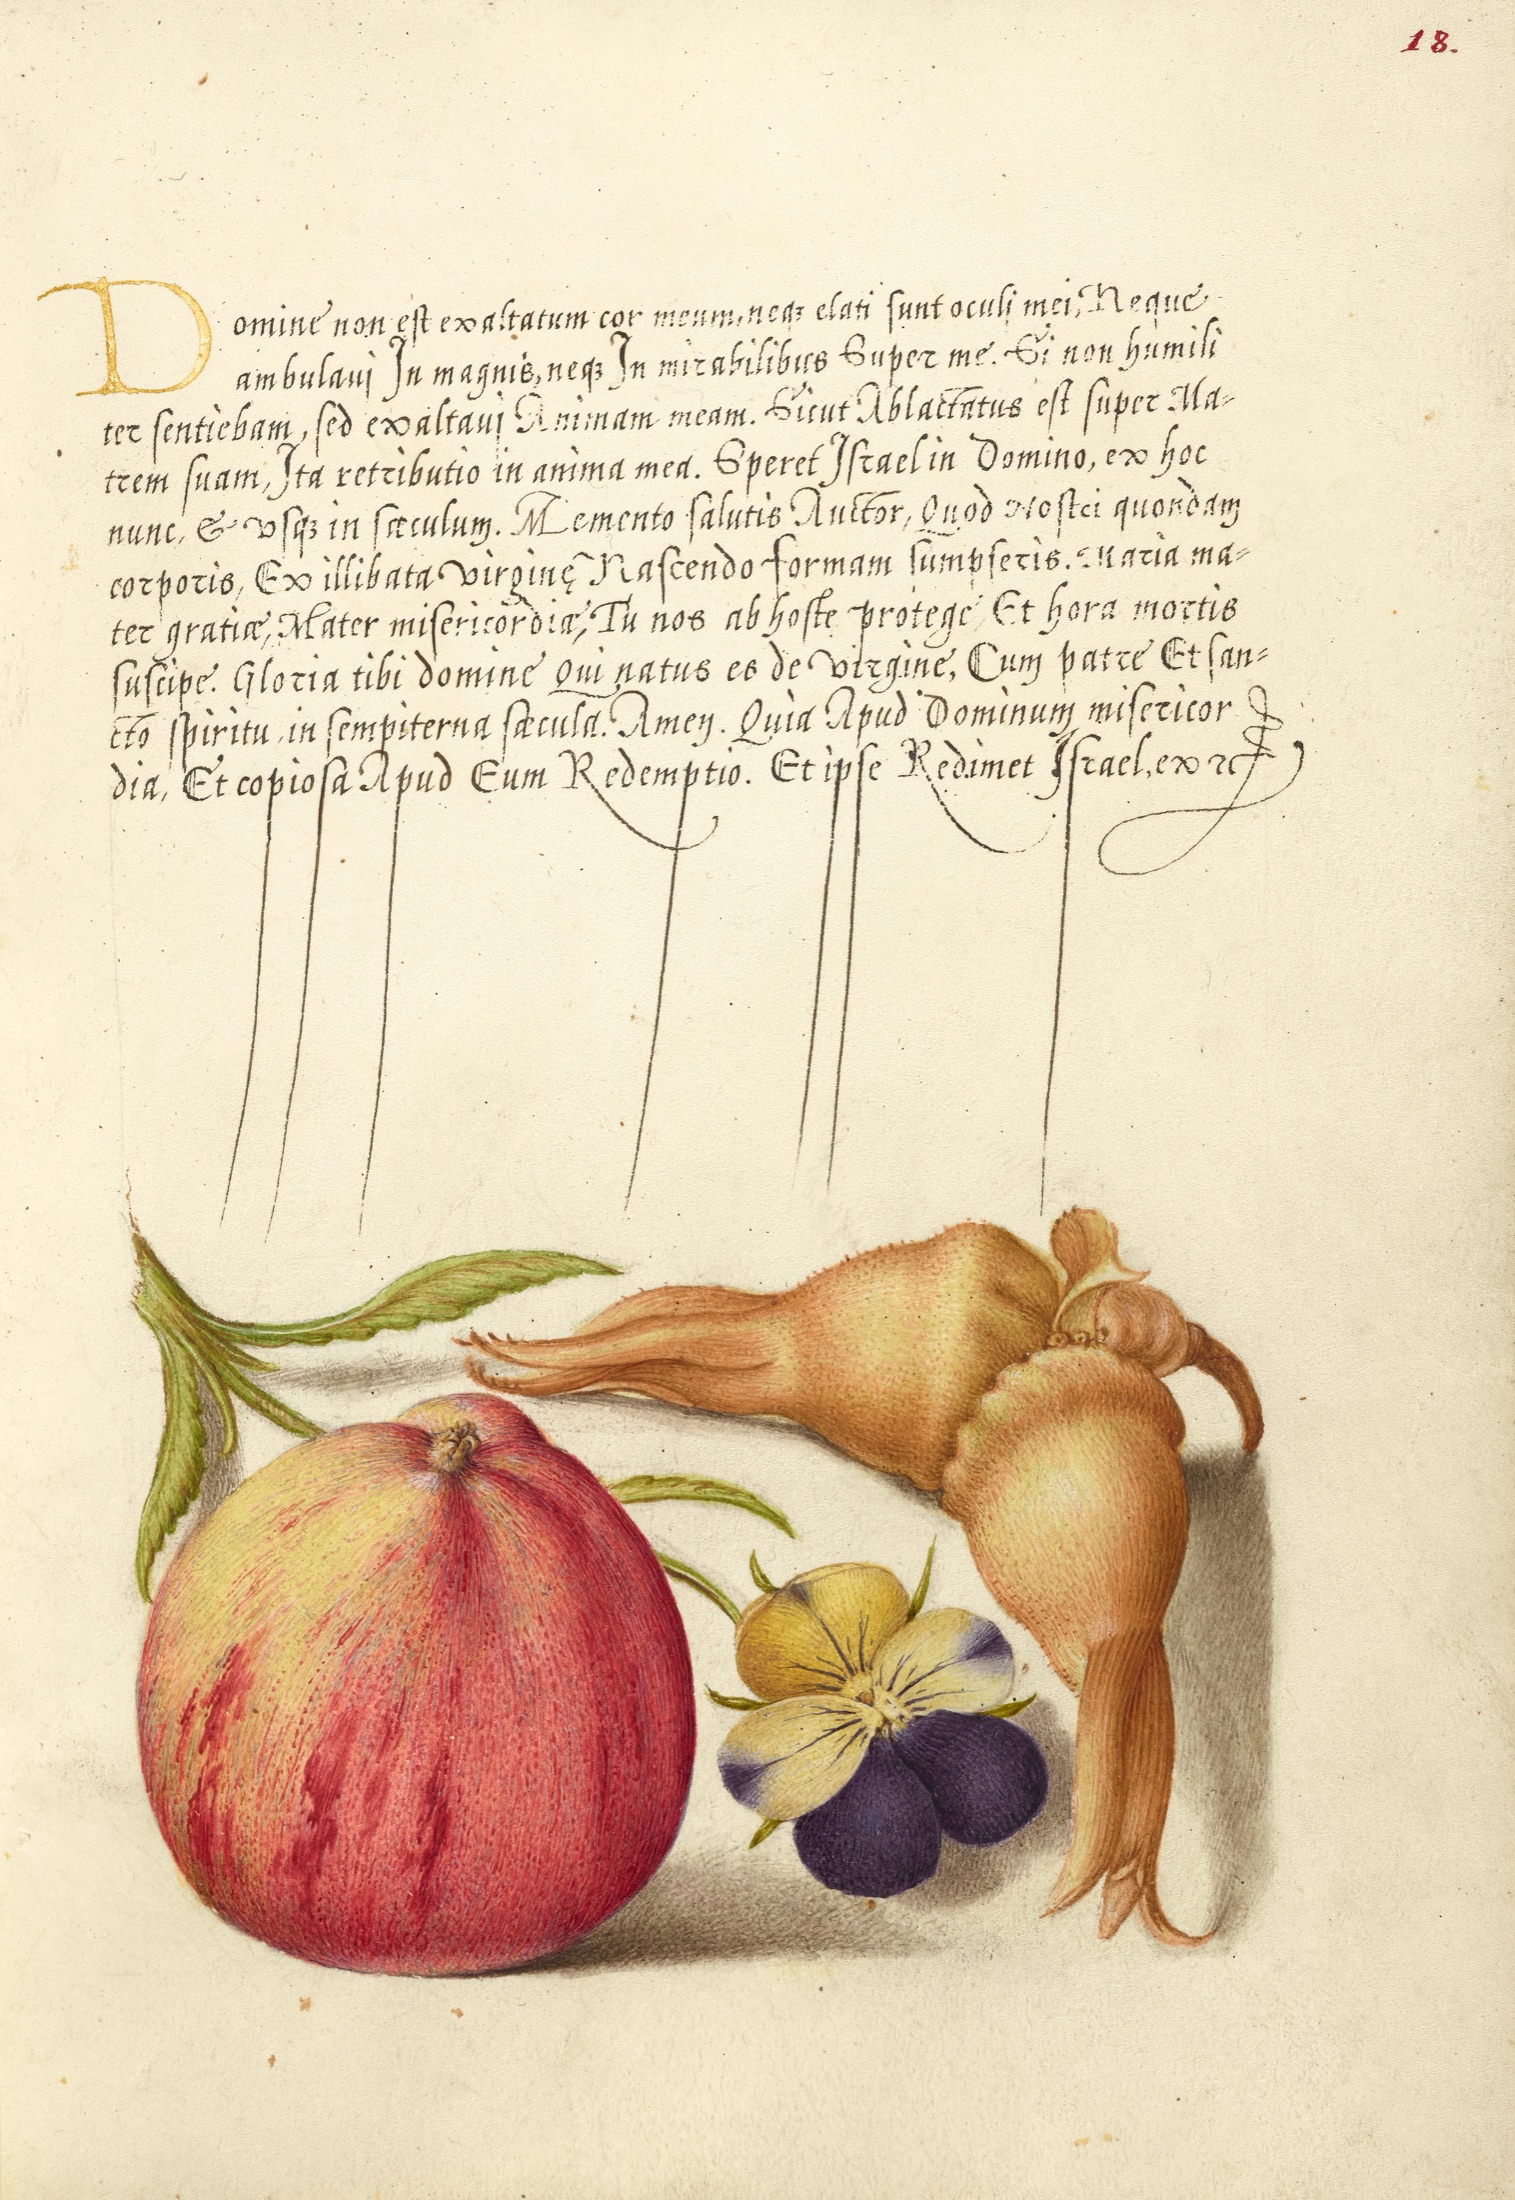 18.
Domine non est exaltatum cor meum, neqꝫ elati sunt oculi mei, Neque
ambulaui In magnis, neqꝫ In mirabilibus Super me. Si non humili
ter sentiebam, sed exaltaui Animam meam. Sicut Ablactatus est super Ma-
trem suam, Ita retributio in anima mea. Speret Israel in Domino, ex hoc
nunc, & vsqꝫ in sæculum. Memento salutis Auctor, Quod Nostri quondam
corporis, Ex illibata virginę Nascendo formam sumpseris. Maria ma-
ter gratiæ, Mater misericordiæ, Tu nos ab hoste protege Et hora mortis
suscipe. Gloria tibi domine Qui natus es de virgine, Cum patre Et san-
cto spiritu in sempiterna sæcula. Amen. Quia Apud Dominum misericor
dia, Et copiosa Apud Eum Redemptio. Et ipse Redimet Israel, ex